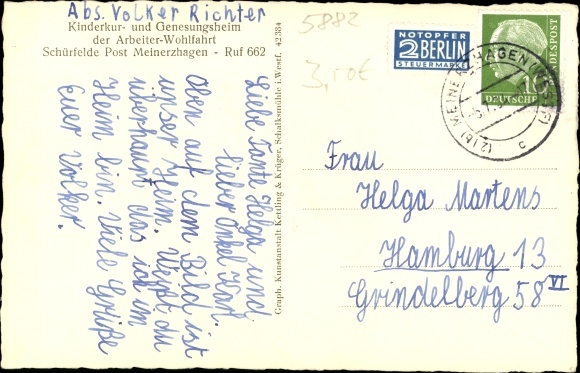 Abs. Volker Richter
Kinderkur- und Genesungsheim
der Arbeiter-Wohlfahrt
Schürfelde Post Meinerzhagen - Ruf 662
Liebe Tante Helga und
lieber Onkel Karl.
Oben auf dem Bild ist
unser Heim. Weißt du
überhaupt das ich im
Heim bin. Viele Grüße
Euer Volker.
Graph. Kunstanstalt Kettling & Krüger, Schalksmühle i. Westf. 42384
5882
3,10€
NOTOPFER
2 BERLIN
STEUERMARKE
10
DEUTSCHE
BUNDESPOST
(21b) MEINERZHAGEN (WESTF)
c
Frau
Helga Martens
Hamburg 13
Grindelberg 58 VI